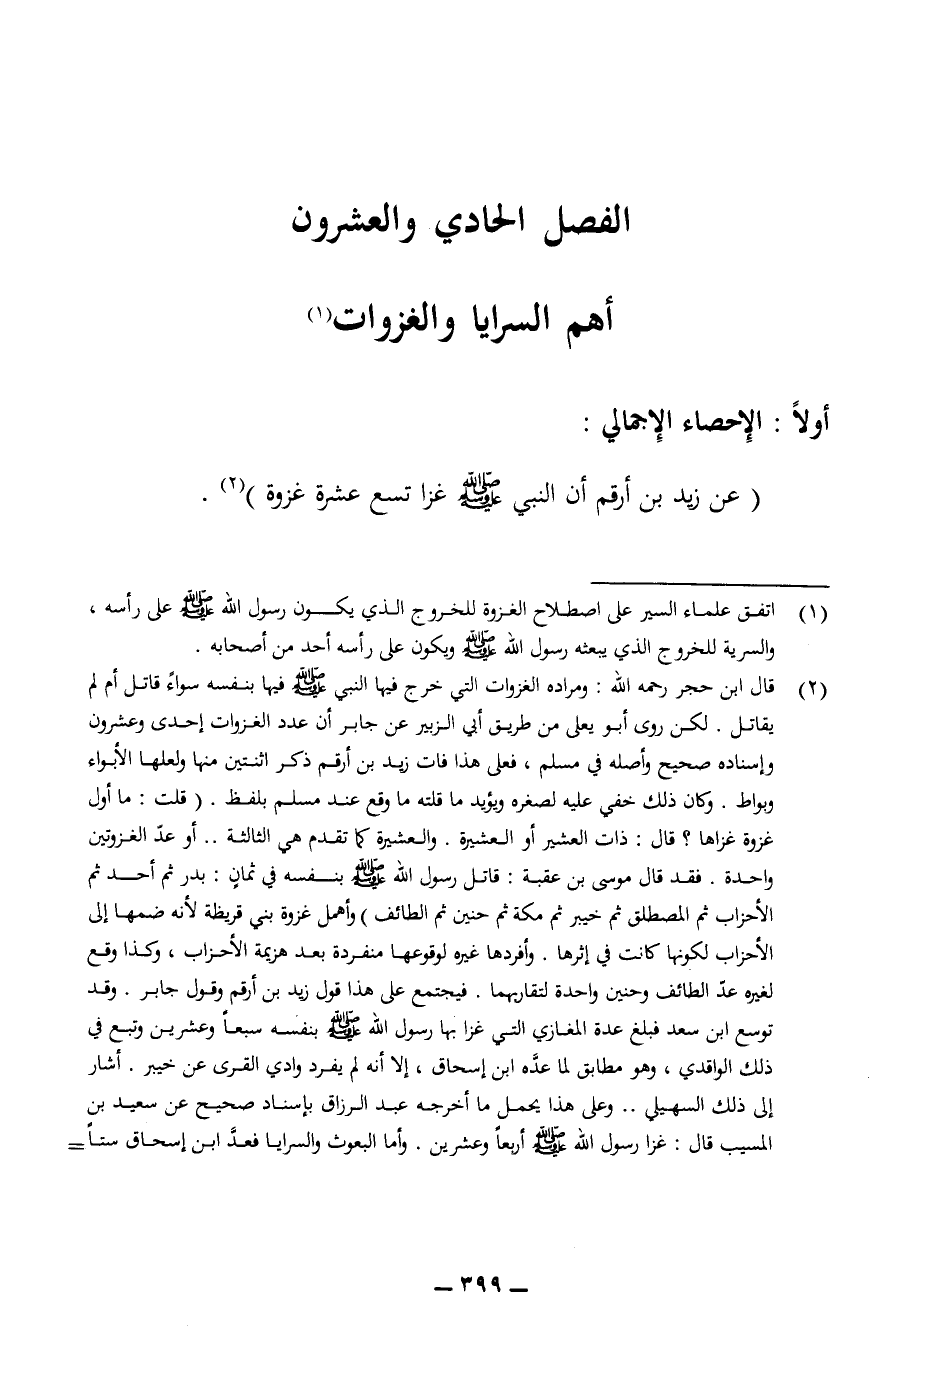 الفصل الحادي والعشرون
أهم السرايا والغزوات(١)
أولاً : الإحصاء الإجمالي :
( عن زيد بن أرقم أن النبي ﷺ غزا تسع عشرة غزوة )(٢) .
(١) اتفق علماء السير على اصطلاح الغزوة للخروج الذي يكون رسول الله ﷺ على رأسه ،
والسرية للخروج الذي يبعثه رسول الله ﷺ ويكون على رأسه أحد من أصحابه .
(٢) قال ابن حجر رحمه الله : ومراده الغزوات التي خرج فيها النبي ﷺ فيها بنفسه سواءً قاتل أم لم
يقاتل . لكن روى أبو يعلى من طريق أبي الزبير عن جابر أن عدد الغزوات إحدى وعشرون
وإسناده صحيح وأصله في مسلم ، فعلى هذا فات زيد بن أرقم ذكر اثنتين منها ولعلها الأبواء
وبواط . وكان ذلك خفي عليه لصغره ويؤيد ما قلته ما وقع عند مسلم بلفظ . ( قلت : ما أول
غزوة غزاها ؟ قال : ذات العشير أو العشيرة . والعشيرة كما تقدم هي الثالثة .. أو عدّ الغزوتين
واحدة . فقد قال موسى بن عقبة : قاتل رسول الله ﷺ بنفسه في ثمانٍ : بدر ثم أحد ثم
الأحزاب ثم المصطلق ثم خيبر ثم مكة ثم حنين ثم الطائف ) وأهمل غزوة بني قريظة لأنه ضمها إلى
الأحزاب لكونها كانت في إثرها . وأفردها غيره لوقوعها منفردة بعد هزيمة الأحزاب ، وكذا وقع
لغيره عدّ الطائف وحنين واحدة لتقاربهما . فيجتمع على هذا قول زيد بن أرقم وقول جابر . وقد
توسع ابن سعد فبلغ عدة المغازي التي غزا بها رسول الله ﷺ بنفسه سبعاً وعشرين وتبع في
ذلك الواقدي ، وهو مطابق لما عدَّه ابن إسحاق ، إلا أنه لم يفرد وادي القرى عن خيبر . أشار
إلى ذلك السهيلي .. وعلى هذا يحمل ما أخرجه عبد الرزاق بإسناد صحيح عن سعيد بن
المسيب قال : غزا رسول الله ﷺ أربعاً وعشرين . وأما البعوث والسرايا فعدَّ ابن إسحاق ستاً =
ـ ٣٩٩ ـ